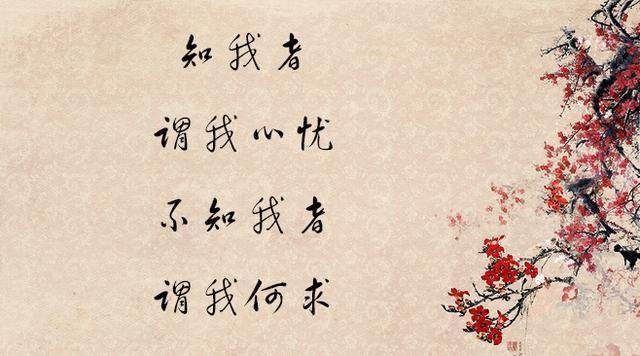 知我者
谓我心忧
不知我者
谓我何求